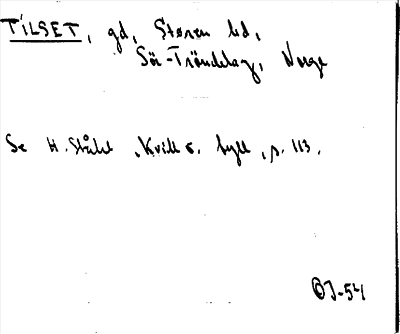 TILSET, gd, Støren hd,
Sör-Tröndelag, Norge
Se H. Ståhl, Kvill o. tyll, p. 113.
OJ-54